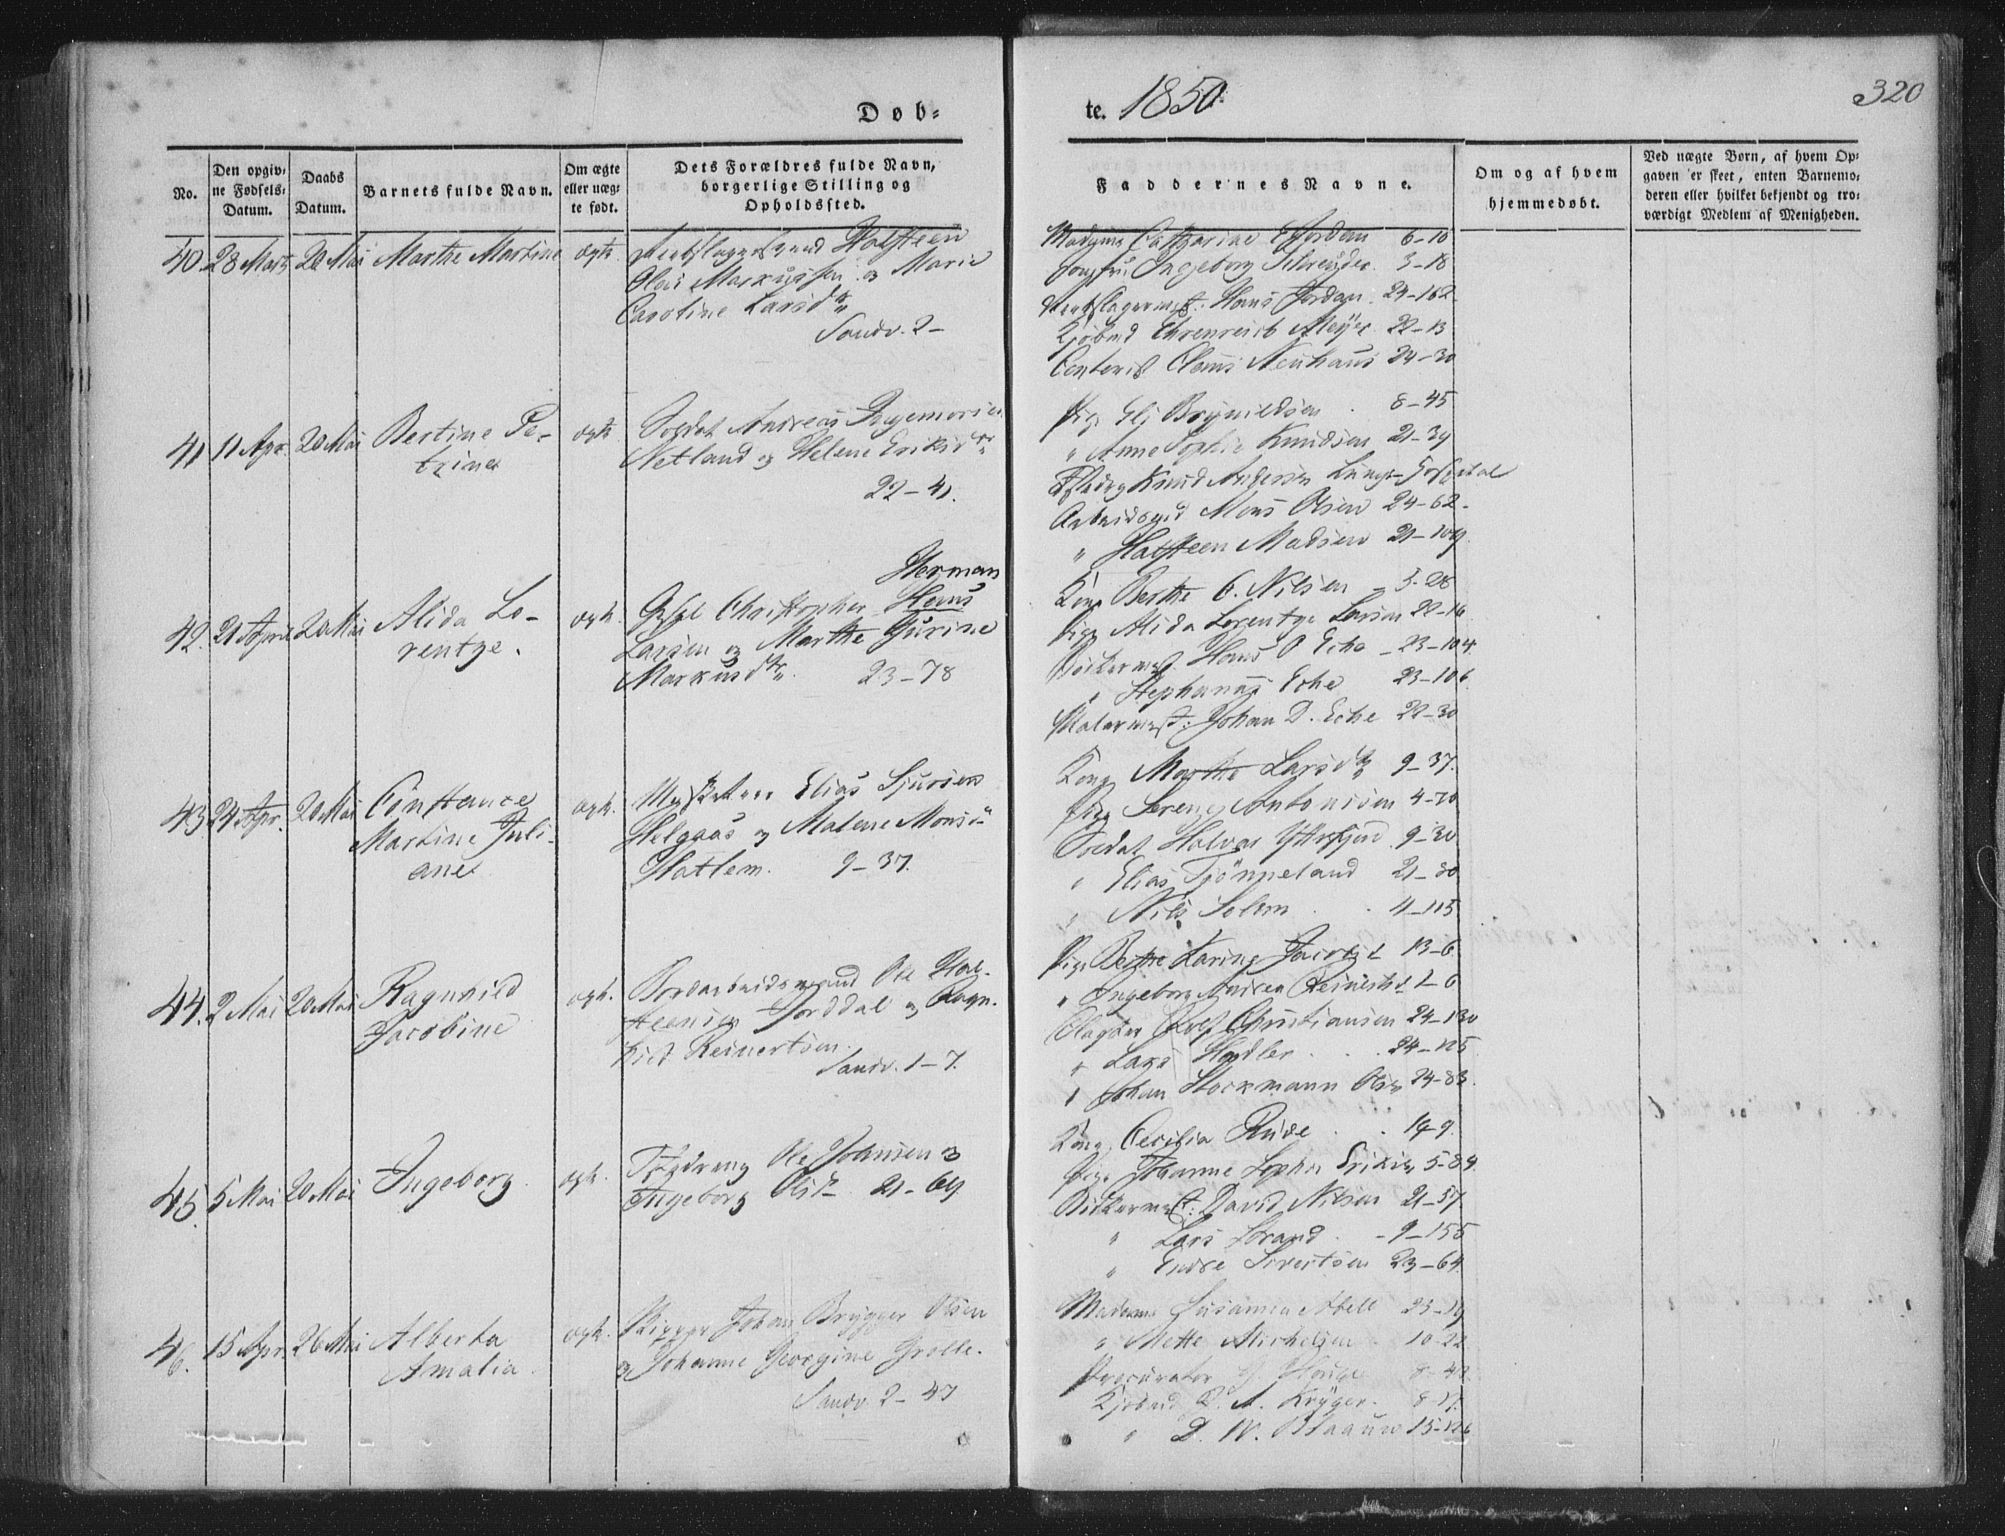 Døb-
te. 1850.
320
No.
Den opgiv-
ne Fødsels-
Datum.
Daabs
Datum.
Barnets fulde Navn.
Om ægte
eller uæg-
te født.
Dets Forældres fulde Navn,
borgerlige Stilling og
Opholdssted.
Faddernes Navne.
Om og af hvem
hjemmedøbt.
Ved uægte Børn, af hvem Op-
gaven er skeet, enten Barnemo-
deren eller hvilket bekjendt og tro-
værdigt Medlem af Menigheden.
40. 28 Marts 20 Mai Marthe Martine ægte Halsteen
Olai Markussen og Marie
Caroline Larsdtr
Sandv. 2-
Madame Cathrine Jordan 6-10
Jomfru Ingeborg Schreuder 3-18
Hans Jordan 24-162
Kjøbmd Ehrenreich Meyer 22-13
Contorist Claus Neuhaus 24-30
41 11 Apr. 20 Mai Bertine Pe-
trine
ægte Soldat Andreas Ingemorsen
Netland og Helene Eriksdr
22-41.
Pige Eli Brynildsen 8-45
" Anne Sophie Knudsen 21-39
Knud Andersen Lungs-Hospital
Arbeidsmd Mons Olsen 24-62
" Halsteen Madsen 21-109
42. 21 April 20 Mai Alida Lo-
rentze.
ægte. Herman
Christopher Hans
Larsen og Marthe Gurine
Markusdtr. 23-78
Kone Berthe C. Nilsen 5-28
Pige Alida Lorentze Larsen 22-16
Hans O Eche 23-104
" Stephanus Eche 23-106
Malermest: Johan D. Eche 22-30
43 24 Apr. 20 Mai Constance
Martine Juli-
ane
ægte. Elias Sjursen
Helgaas og Malene Monsd
Hatlem. 9-37.
Kone Marthe Larsdtr 9-37.
Pige Serene Antonisen 4-70
Soldat Halvor 9-30
" Elias Tjønneland 21-30
" Nils Solem 11-115
44. 2 Mai 20 Mai Ragnhild
Jacobine
ægte. Bordarbeidsmand Ole Hal-
steensen Jorddal og Ragn-
hild Reinertsen.
Sandv. 1-7.
Pige Berthe Karine Jacobsd 13-6
" Ingeborg Andrea Reinertsd 1-6
Rolf Christiansen 24-130
" Lars Hodler 24-125
" Johan Stockmann Olsen 24-83
45. 5 Mai 20 Mai Ingeborg
ægte. Ole Johnsen og
Ingeborg Olsd 21-69
Kone Cecilia Rude 19-9.
Pige Johanne Sophie Eriksen 5-84
David Nilsen 21-57.
" Lars Strand 9-155
" Endre Sivertsen 23-64.
46. 15 Apr. 26 Mai Alberta
Amalia.
ægte. Skipper Johan Brygger Olsen
og Johanne Georgine Grolle.
Sandv. 2-47
Madame Susanna Abell 23-19
" Mette Michelsen 10-22
Procurator 8-42
Kjøbmd D. A. Krüger. 8-17.
" D. W. Blaauw 15-126